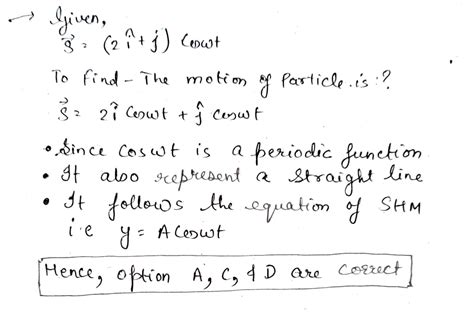 → Given,
s⃗ = (2î + ĵ) Cosωt
To find – The motion of Particle is :?
s⃗ = 2î Cosωt + ĵ cosωt
• Since cosωt is a periodic function
• It also represent a straight line
• It follows the equation of SHM
i.e y = A Cosωt
Hence, option A, C, & D are correct